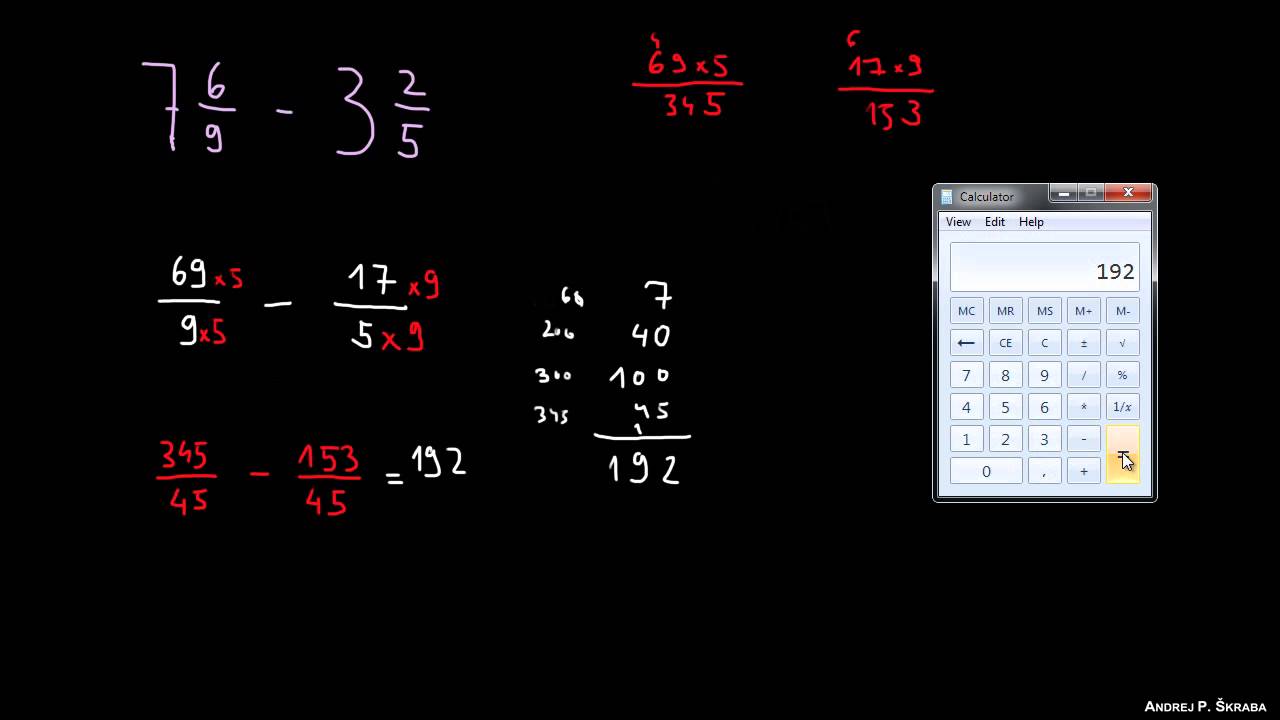 7 6/9 - 3 2/5
4
69 × 5
345
6
17 × 9
153
69 × 5 / 9 × 5 - 17 × 9 / 5 × 9
60 7
200 40
300 100
345 45
1
192
345/45 - 153/45 = 192
Calculator
View Edit Help
192
MC MR MS M+ M-
← CE C ± √
7 8 9 / %
4 5 6 * 1/x
1 2 3 - =
0 , +
ANDREJ P. ŠKRABA